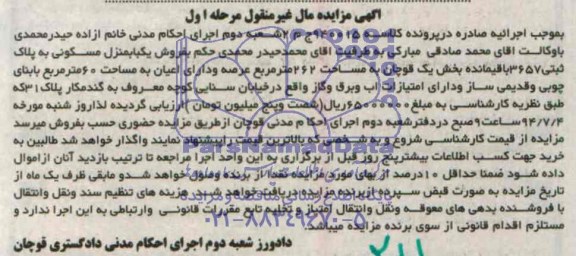 آگهی مزایده مال غیرمنقول مرحله اول
بموجب اجرائیه صادره درپرونده کلاسه شعبه دوم اجرای احکام مدنی خانم ازاده حیدرمحمدی
باوکالت اقای محمد صادقی مبارکی به طرفیت اقای محمدحیدر محمدی حکم بفروش یکبابمنزل مسکونی به پلاک
ثبتی۳۶۵۷باقیمانده بخش یک قوچان به مساحت ۲۶۲مترمربع عرصه ودارای اعیان به مساحت ۶۰مترمربع بابنای
چوبی وقدیمی ساز ودارای امتیازات آب وبرق وگاز واقع درخیابان سنایی کوچه معروف به گندمکار پلاک۳۱که
طبق نظریه کارشناسی به مبلغ ریال(شصت وپنج میلیون تومان )ارزیابی گردیده لذاروز شنبه مورخه
۹۴/۷/۴ساعت۹صبح دردفترشعبه دوم اجرای احکام مدنی قوچان ازطریق مزایده حضوری حسب بفروش میرسد
مزایده از قیمت کارشناسی شروع و به شخصی که بالاترین قیمت راپیشنهاد نمایند واگذار خواهد شد طالبین به
خرید جهت کسب اطلاعات بیشترپنج روز قبل از برگزاری به این واحد اجرا مراجعه تا ترتیب بازدید آنان ازاموال
داده شود ضمنا حداقل ۱۰درصد از بهای مورد مزایده نقدا از برنده وصول خواهد شدو مابقی ظرف یک ماه از
تاریخ مزایده به صورت قبض سپرده ازبرنده مزایده دریافت خواهد شد. هزینه های تنظیم سند ونقل وانتقال
با فروشنده بدهی های معوقه ونقل وانتقال امتیاز و تخلیه تابع مقررات قانونی وارتباطی به این اجرا ندارد و
مستلزم اقدام قانونی از سوی برنده مزایده میباشد.
دادورز شعبه دوم اجرای احکام مدنی دادگستری قوچان
ParsNamadData
۰۲۱-۸۸۳۴۹۶۷۰-۵